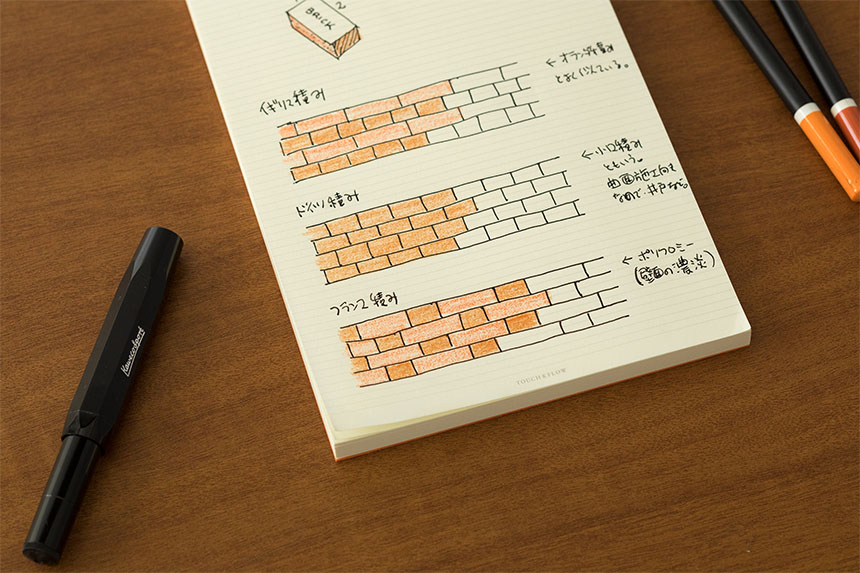 2
BRICK
イギリス積み
← オランダ積み
とよく似ている。
ドイツ積み
← 小口積み
という。
曲面施工向き
なので、井戸など。
フランス積み
← ポリクロミー
(壁面の濃淡)
TOUCH & FLOW
Kaweco Sport